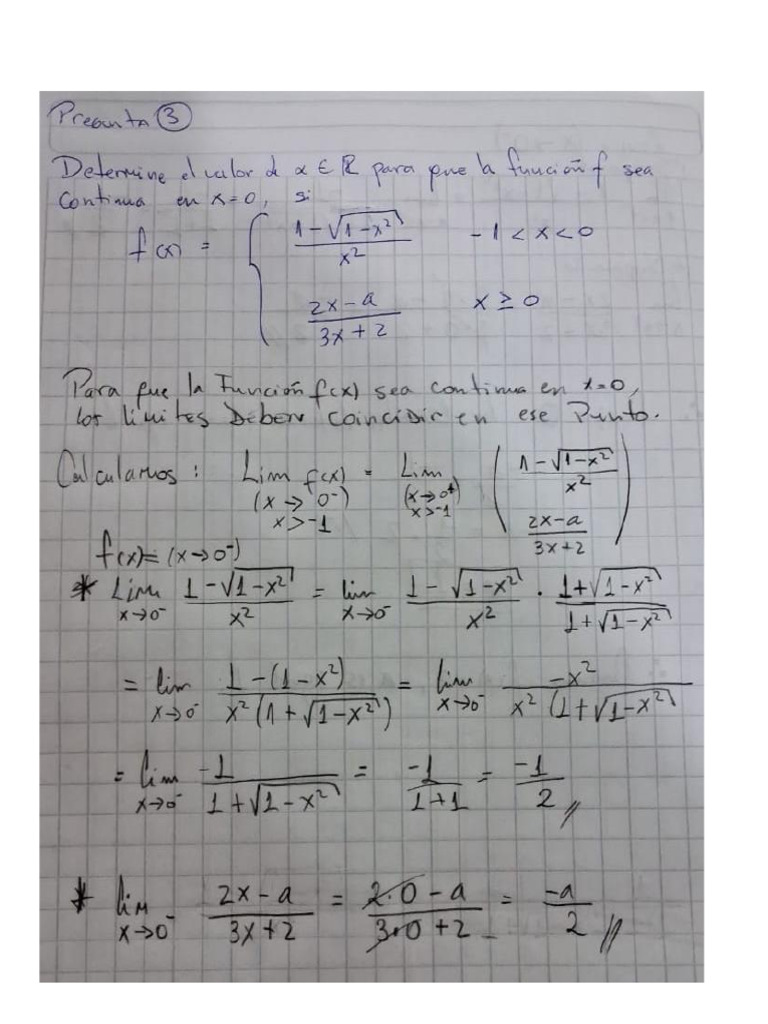 Pregunta 3
Determine el valor d α ∈ ℝ para que la función f sea
continua en x=0, si
f(x) = { (1-√(1-x²))/x²    -1 < x < 0
(2x-a)/(3x+2)    x ≥ 0
Para que la Función f(x) sea continua en x=0,
los limites Deben coincidir en ese Punto.
Calculamos: Lim f(x) = Lim ( (1-√(1-x²))/x²
(x→0⁻) (x→0⁺)
x>-1 x>-1 (2x-a)/(3x+2) )
f(x)=(x→0⁻)
* Lim x→0⁻ (1-√(1-x²))/x² = lim x→0⁻ (1-√(1-x²))/x² · (1+√(1-x²))/(1+√(1-x²))
= lim x→0⁻ (1-(1-x²))/(x²(1+√(1-x²))) = lim x→0⁻ -x²/(x²(1+√(1-x²))
= lim x→0⁻ -1/(1+√(1-x²)) = -1/(1+1) = -1/2 //
* lim x→0⁻ (2x-a)/(3x+2) = (2·0-a)/(3·0+2) = -a/2 //